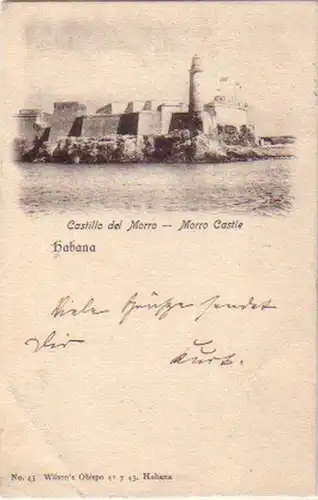 Castillo del Morro — Morro Castle
Habana
Viele Grüße sendet
Dir
Kurt.
No. 43 Wilson's Obispo 41 y 43, Habana